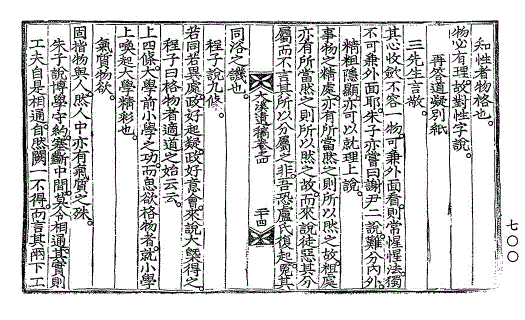 知性者物格也
物必有理故對性字說
再答道凝別紙
三先生言敬
其心收斂不容一物可兼外面看則常惺惺法獨
不可兼外面耶朱子亦嘗曰謝尹二說難分內外
精粗隱顯亦可以就理上說
事物之精處亦有所當然之則所以然之故粗處
亦有所當然之則所以然之故而來說徒惡其分
屬而不言其所以分屬之非吾恐盧氏復起冤其
溪遺稿卷四
二十四
同洛之譏也
程子說九條
若同若異處政好起疑政好意會來說大槩得之
程子曰格物者適道之始云云
上四條大學前小學之功而思欲格物者就小學
上喚起大學精彩也
氣質物欲
固指物與人然人中亦有氣質之殊
朱子說博學守約塞斷中間莫令相通其實則
工夫自是相通自然闕一不得而言其兩下工
七〇〇